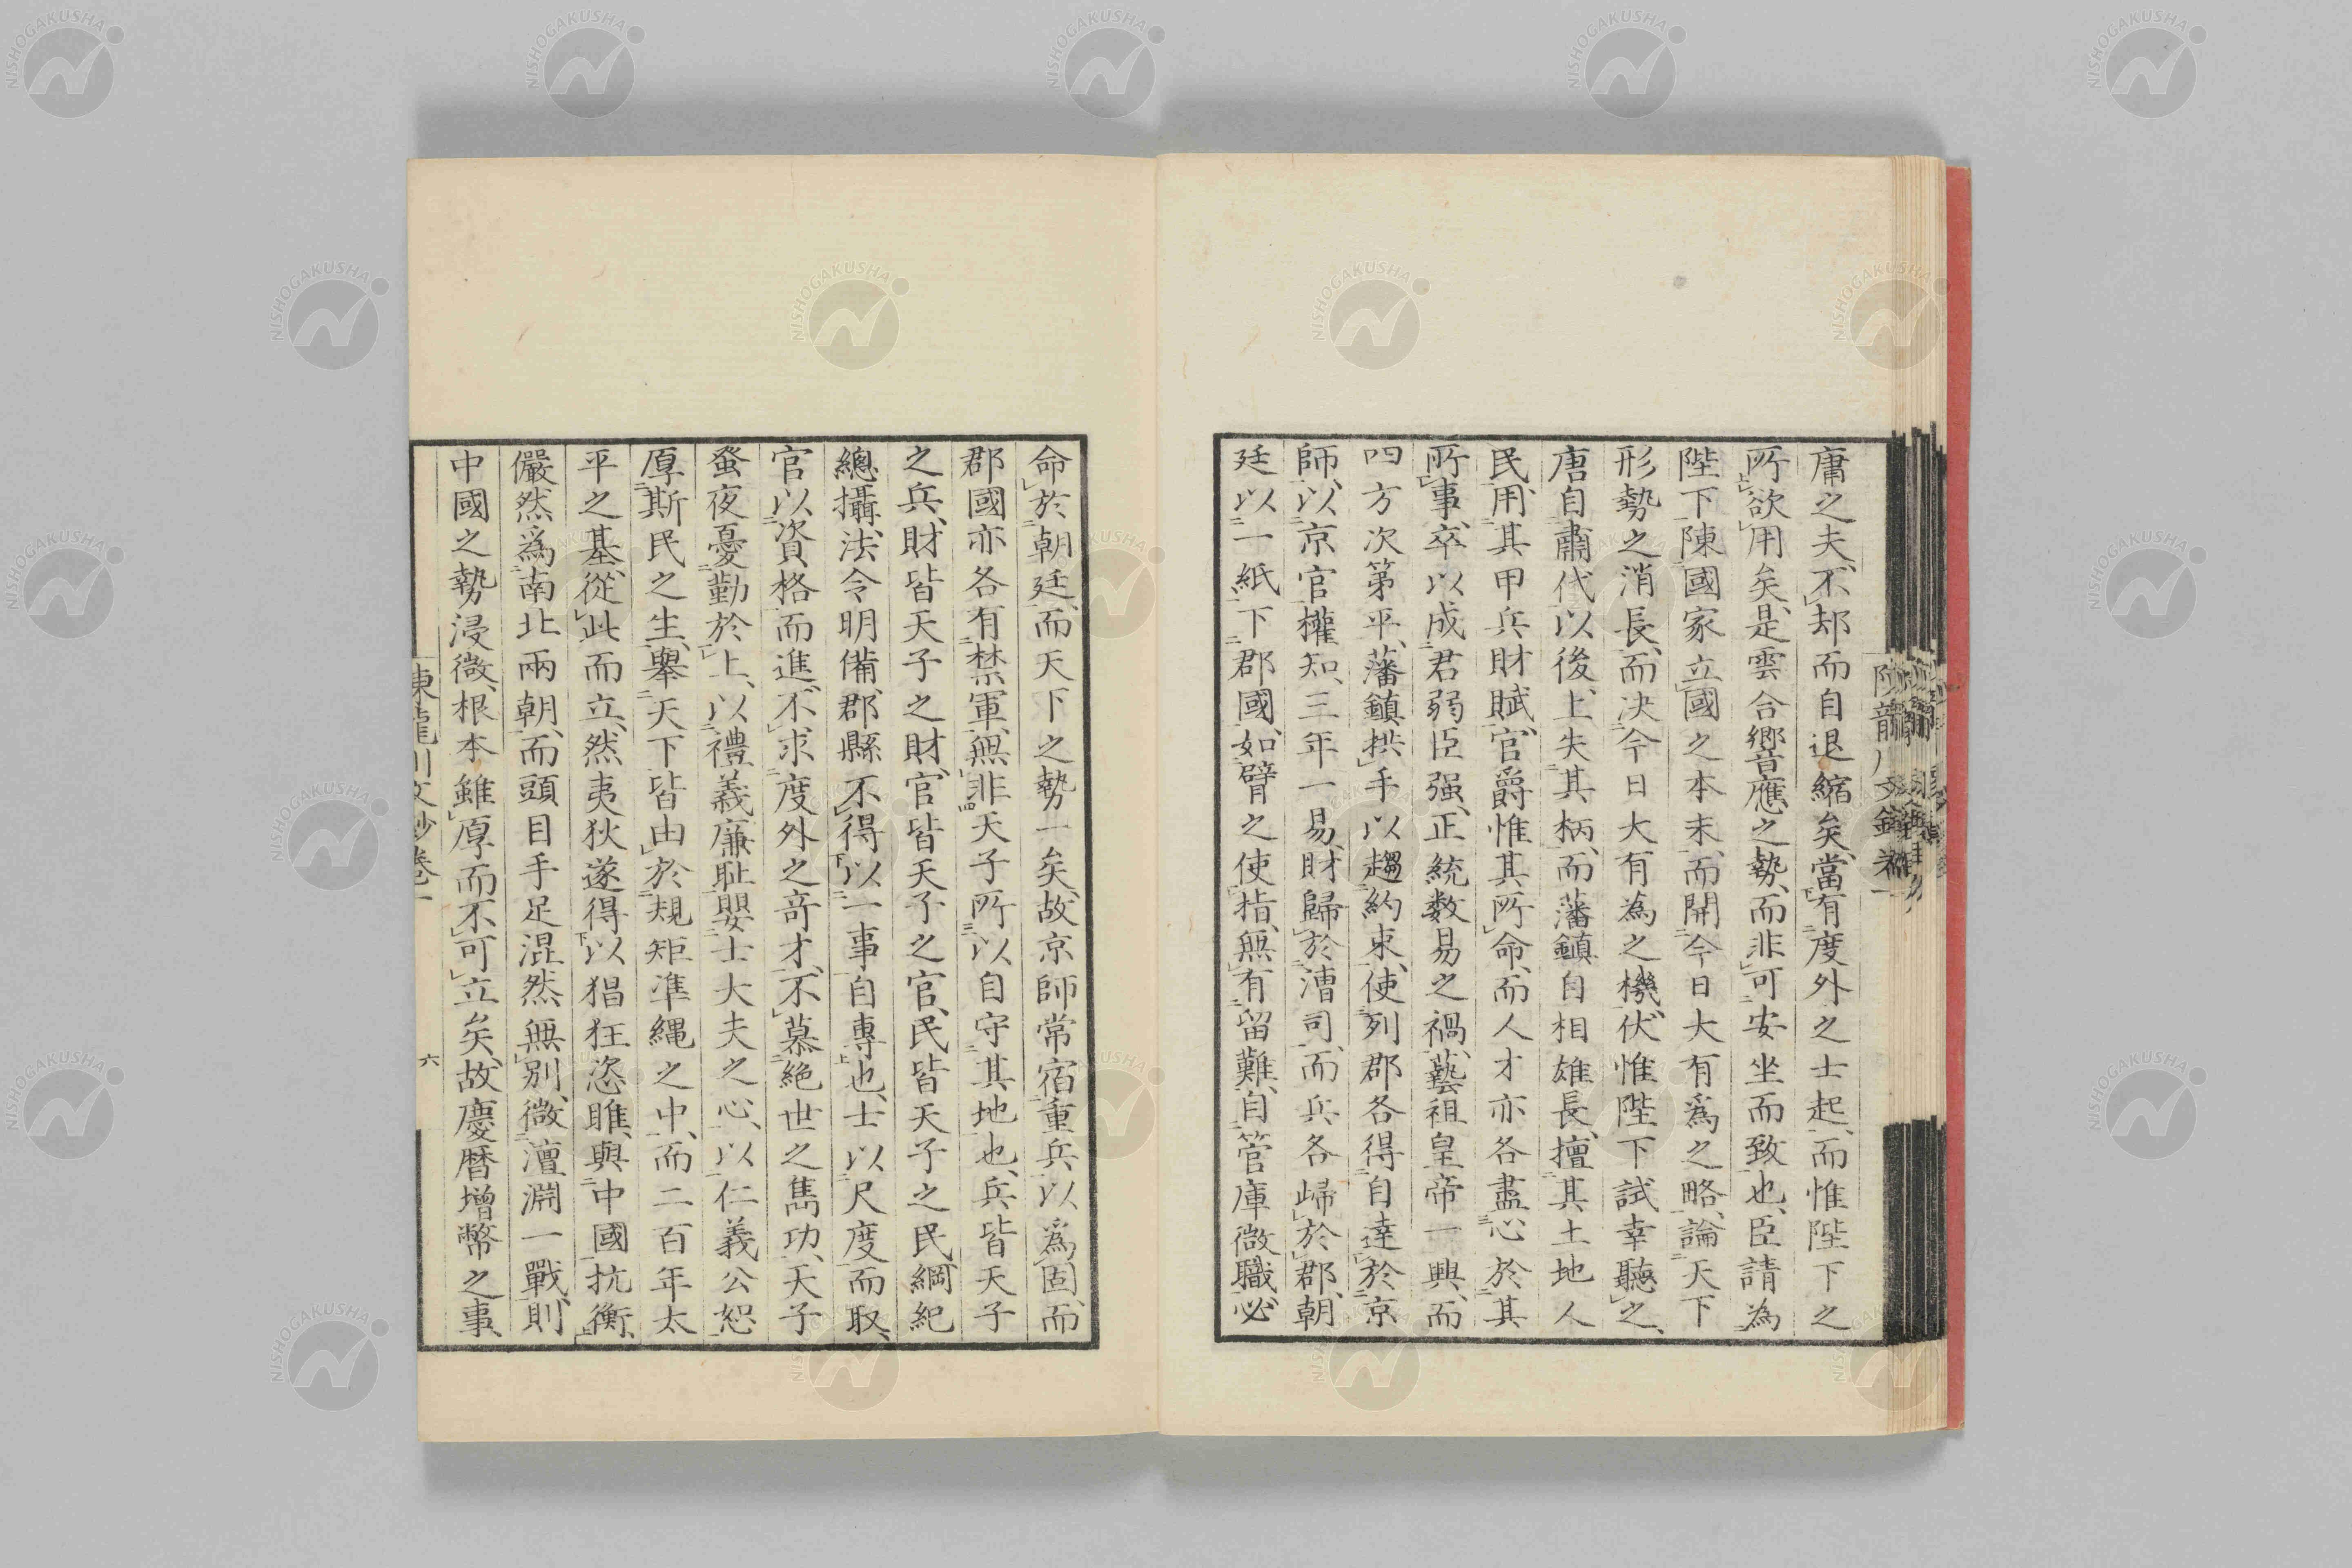 庸之夫、不却而自退縮矣、當有度外之士起、而惟陛下之
所欲用矣、是雲合響應之勢、而非可安坐而致也、臣請為
陛下陳國家立國之本末、而開今日大有爲之略、論天下
形勢之消長、而決今日大有為之機、伏惟陛下試幸聽之、
唐自肅代以後、上失其柄、而藩鎮自相雄長、擅其土地人
民、用其甲兵財賦、官爵惟其所命、而人才亦各盡心於其
所事、卒以成君弱臣强、正統數易之禍、藝祖皇帝一興、而
四方次第平、藩鎮拱手以趨約束、使列郡各得自達於京
師、以京官權知、三年一易、財歸於漕司、而兵各歸於郡、朝
廷以一紙下郡國、如臂之使指、無有留難、自管庫微職、必
命於朝廷、而天下之勢一矣、故京師常宿重兵以爲固、而
郡國亦各有禁軍、無非天子所以自守其地也、兵皆天子
之兵、財皆天子之財、官皆天子之官、民皆天子之民、綱紀
總攝、法令明備、郡縣不得以一事自專也、士以尺度而取、
官以資格而進、不求度外之奇才、不慕絕世之雋功、天子
蚤夜憂勤於上、以禮義廉恥嬰士大夫之心、以仁義公恕
厚斯民之生、舉天下皆由於規矩準繩之中、而二百年太
平之基、從此而立、然夷狄遂得以猖狂恣睢、與中國抗衡、
儼然爲南北兩朝、而頭目手足混然無別、微澶淵一戰、則
中國之勢浸微、根本雖厚而不可立矣、故慶曆增幣之事、
陳龍川文鈔卷一
六
NISHOGAKUSHA